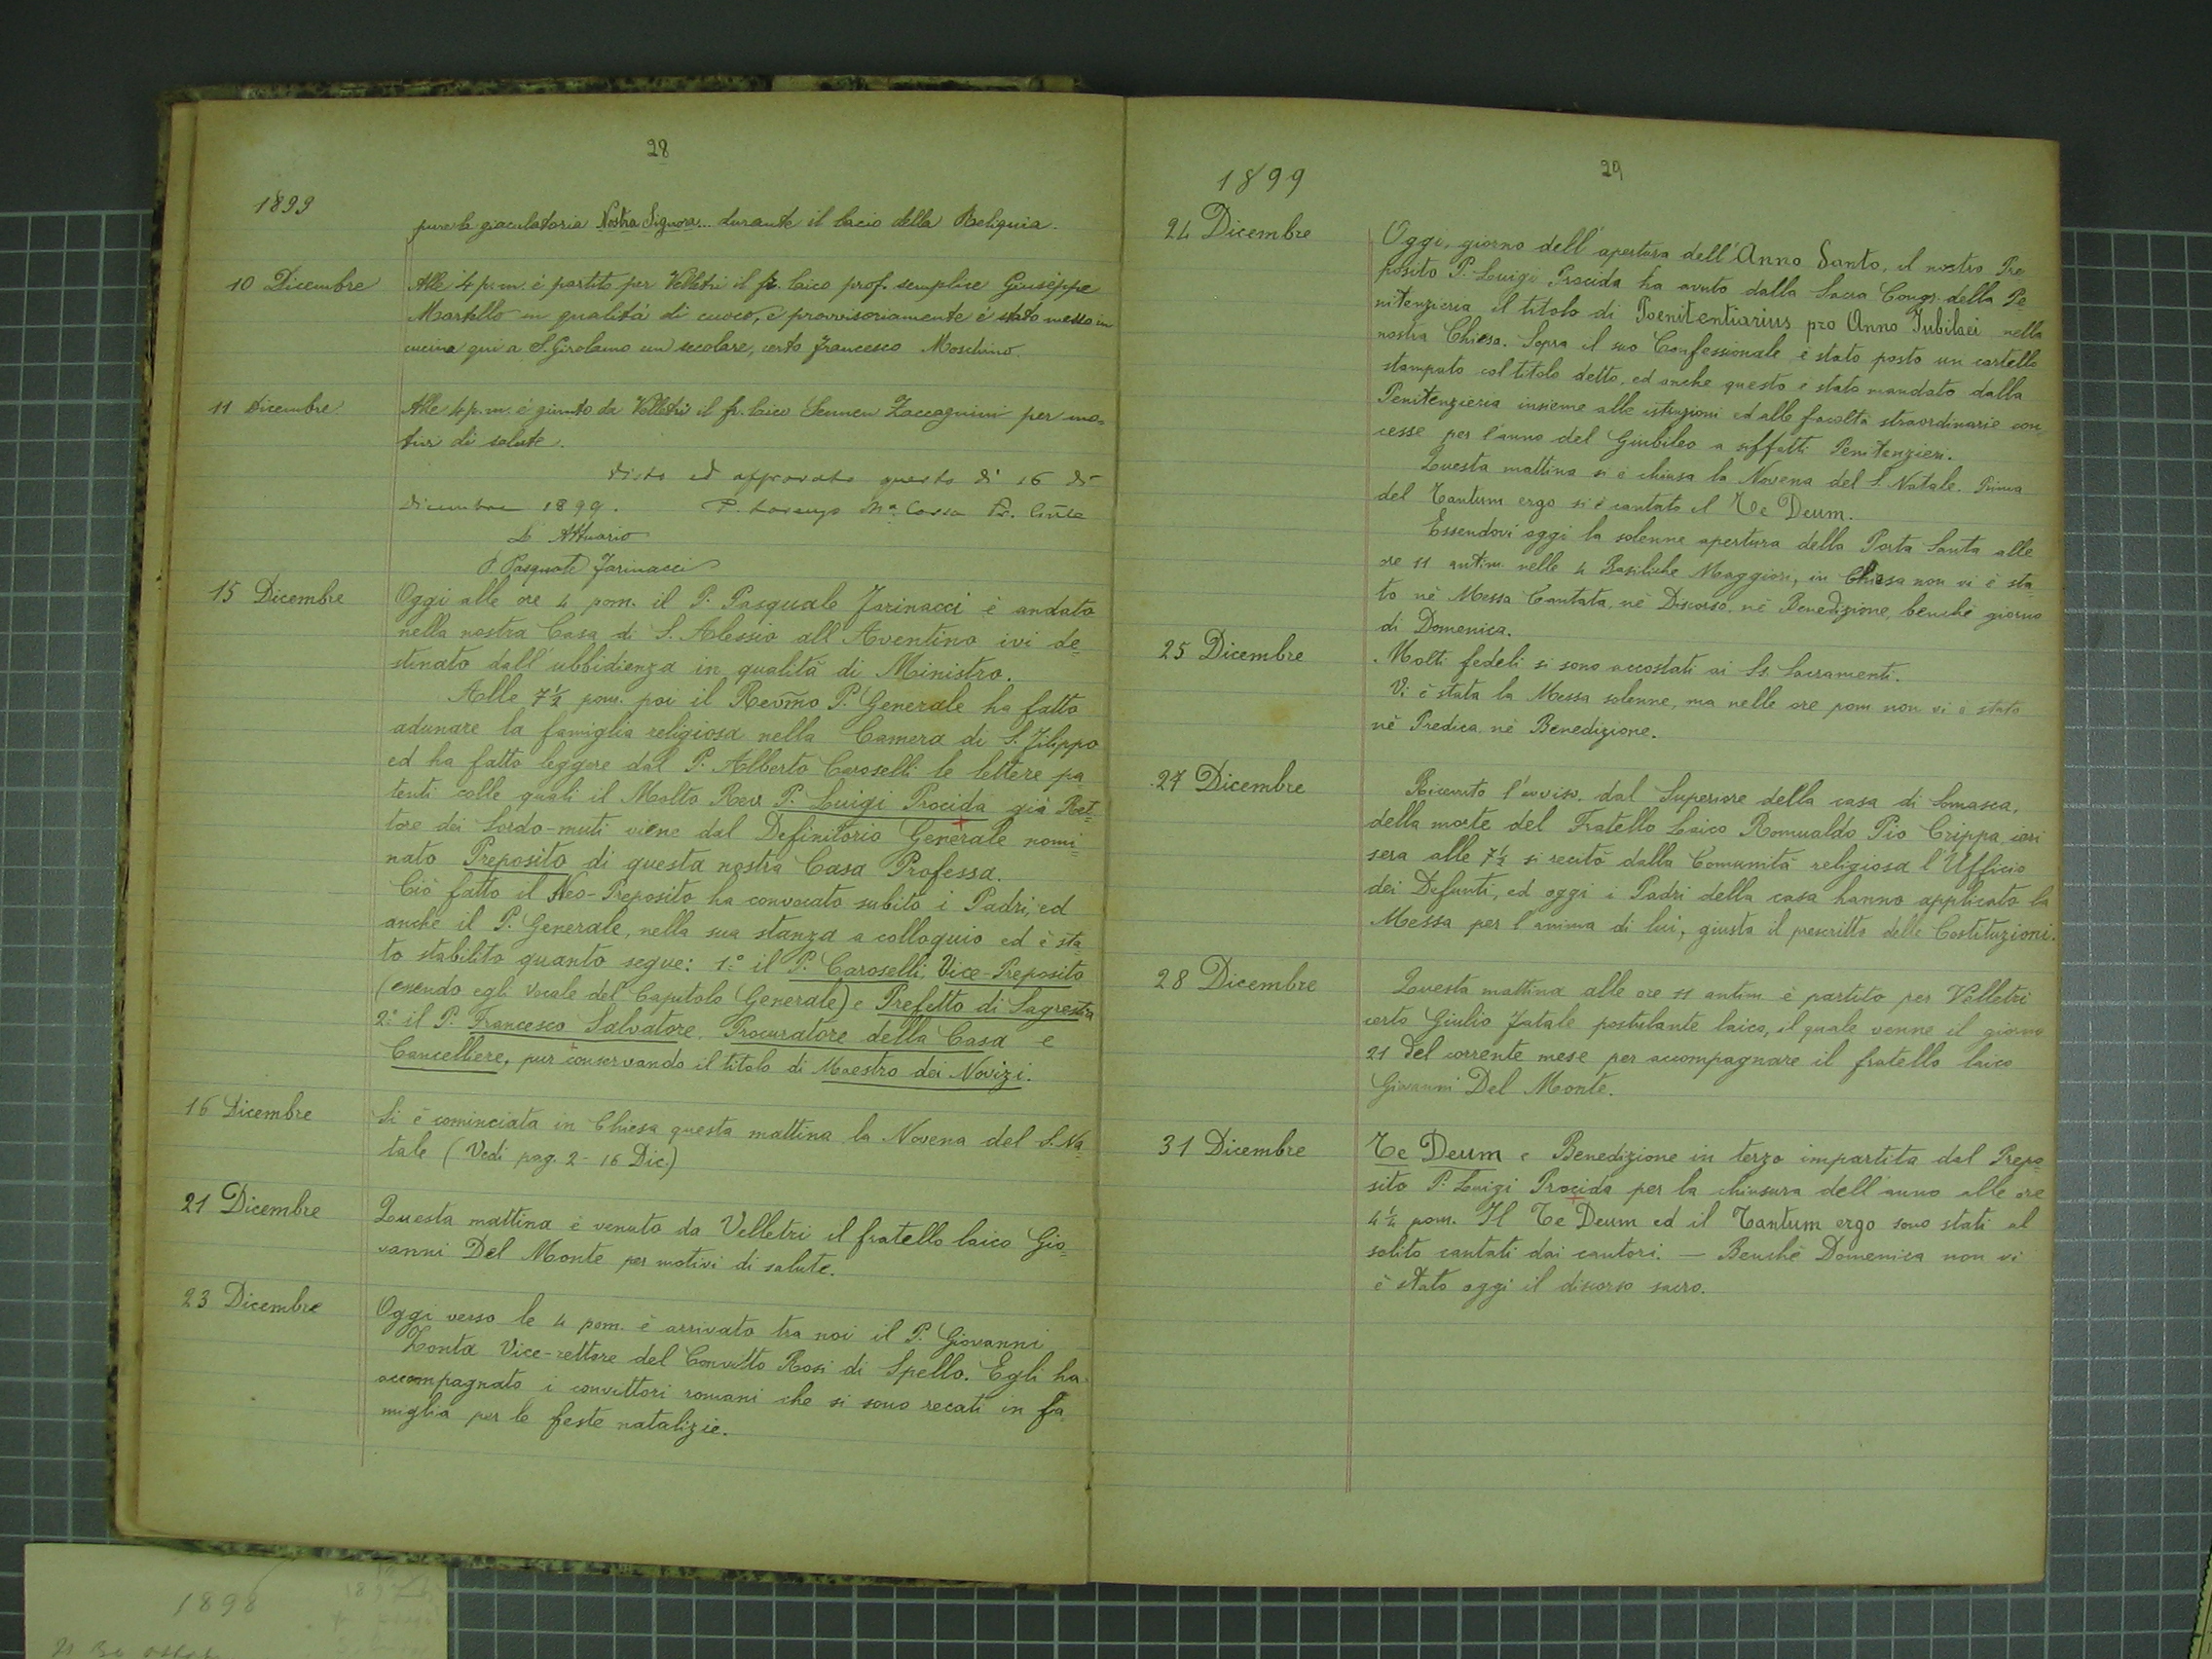 28
1899
pure la giaculatoria Nostra Signora... durante il bacio della Reliquia.
10 Dicembre
Alle 4 p.m. è partito per Velletri il fr. laico prof. semplice Giuseppe
Martello in qualità di cuoco, e provvisoriamente è stato messo in
cucina qui a S. Girolamo un secolare, certo Francesco Moschino.
11 Dicembre
Alle 4 p.m. è giunto da Velletri il fr. laico Sennen Zaccagnini per mo=
tivi di salute.
Visto ed approvato questo dì 16 di
Dicembre 1899. P. Lorenzo Ma. Cossa Pr. Gñle
L'Attuario
P. Pasquale Farinacci
15 Dicembre
Oggi alle ore 4 pom. il P. Pasquale Farinacci è andato
nella nostra Casa di S. Alessio all'Aventino ivi de=
stinato dall'ubbidienza in qualità di Ministro.
Alle 7½ pom. poi il Revm̃o P. Generale ha fatto
adunare la famiglia religiosa nella Camera di S. Filippo
ed ha fatto leggere dal P. Alberto Caroselli le lettere pa
tenti colle quali il Molto Rev. P. Luigi Procida già Ret=
tore dei Sordo-muti viene dal Definitorio Generale nomi=
nato Preposito di questa nostra Casa Professa.
Ciò fatto il Neo-Preposito ha convocato subito i Padri, ed
anche il P. Generale, nella sua stanza a colloquio ed è sta
to stabilito quanto segue: 1.° il P. Caroselli, Vice-Preposito
(essendo egli Vocale del Capitolo Generale) e Prefetto di Sagrestia
2.° il P. Francesco Salvatore, Procuratore della Casa e
Cancelliere, pur conservando il titolo di Maestro dei Novizi.
16 Dicembre
Si è cominciata in Chiesa questa mattina la Novena del S. Na
tale (Vedi pag. 2 - 16 Dic.)
21 Dicembre
Questa mattina è venuto da Velletri il fratello laico Gio=
vanni Del Monte per motivi di salute.
23 Dicembre
Oggi verso le 4 pom. è arrivato tra noi il P. Giovanni
Zonta Vice-rettore del Convitto Rosi di Spello. Egli ha
accompagnato i convittori romani che si sono recati in fa
miglia per le feste natalizie.
29
1899
24 Dicembre
Oggi, giorno dell'apertura dell'Anno Santo, il nostro Pre
posito P. Luigi Procida ha avuto dalla Sacra Congr. della Pe
nitenzieria il titolo di Poenitentiarius pro Anno Jubilaei nella
nostra Chiesa. Sopra il suo Confessionale è stato posto un cartello
stampato col titolo detto, ed anche questo è stato mandato dalla
Penitenzieria insieme alle istruzioni ed alle facoltà straordinarie con
cesse per l'anno del Giubileo a siffatti Penitenzieri.
Questa mattina si è chiusa la Novena del S. Natale. Prima
del Tantum ergo si è cantato il Te Deum.
Essendovi oggi la solenne apertura della Porta Santa alle
ore 11 antim. nelle 4 Basiliche Maggiori, in Chiesa non vi è sta
to nè Messa Cantata, nè Discorso, nè Benedizione, benchè giorno
di Domenica.
25 Dicembre
Molti fedeli si sono accostati ai Ss. Sacramenti.
Vi è stata la Messa solenne, ma nelle ore pom. non vi è stato
nè Predica nè Benedizione.
27 Dicembre
Ricevuto l'avviso dal Superiore della casa di Somasca,
della morte del Fratello Laico Romualdo Pio Crippa, ieri
sera alle 7½ si recitò dalla Comunità religiosa l'Ufficio
dei Defunti, ed oggi i Padri della casa hanno applicato la
Messa per l'anima di lui, giusta il prescritto delle Costituzioni.
28 Dicembre
Questa mattina alle ore 11 antim. è partito per Velletri
certo Giulio Fatale postulante laico, il quale venne il giorno
21 del corrente mese per accompagnare il fratello laico
Giovanni Del Monte.
31 Dicembre
Te Deum e Benedizione in terzo impartita dal Prepo=
sito P. Luigi Procida per la chiusura dell'anno alle ore
4½ pom. Il Te Deum ed il Tantum ergo sono stati al
solito cantati dai cantori. — Benchè Domenica non vi
è stato oggi il discorso sacro.
1898